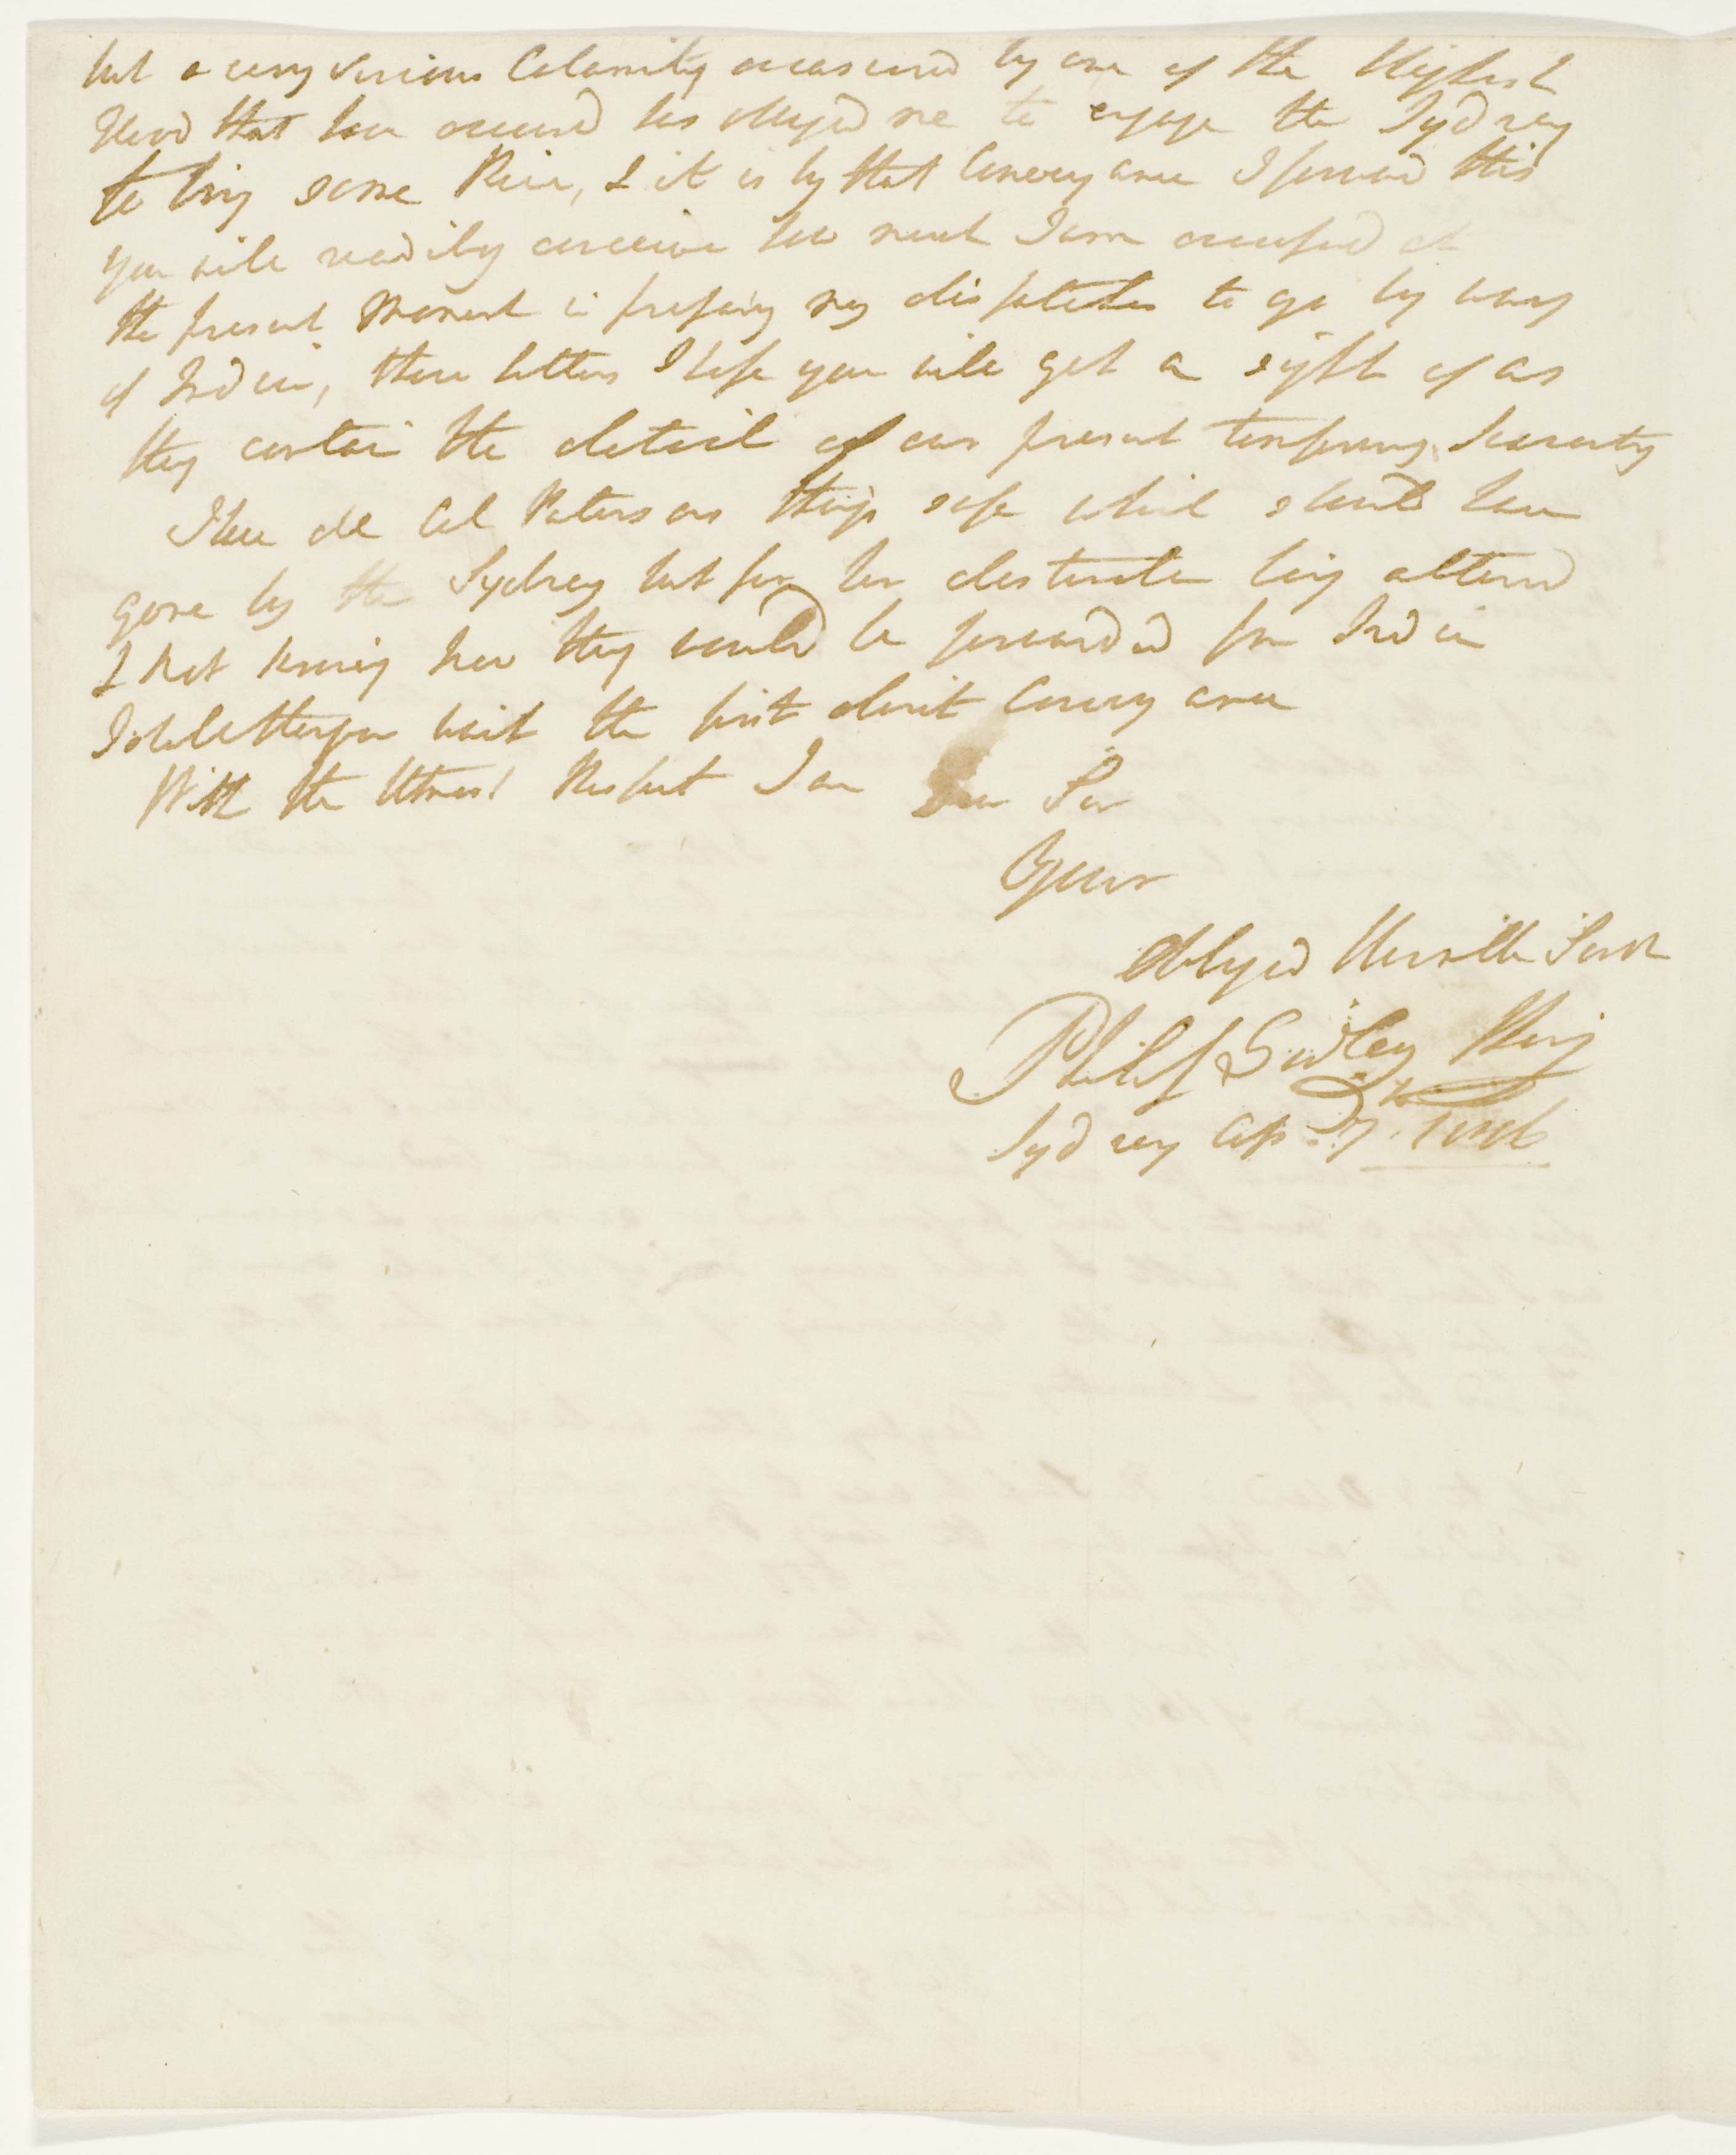 but a very serious Calamity occasioned by one of the Highest
Flood that have occurred has obliged me to engage the Sydney
to bring some Rice, & it is by that Conveyance I forward this
You will readily conceive how much I am occupied at
the present Moment in preparing my dispatches to go by way
of India, those letters I hope you will get a sight of as
they contain the detail of our present temporary Scarcity
I have all Col Patersons things safe which should have
gone by the Sydney but for her destination being altered
& Not knowing how they would be forwarded from India
I shall therefore wait the first direct Conveyance
With the Utmost Respect I am Dear Sir
Your
Obliged Humble Servt
Philip Gidley King
Sydney Ap. 27th 1806